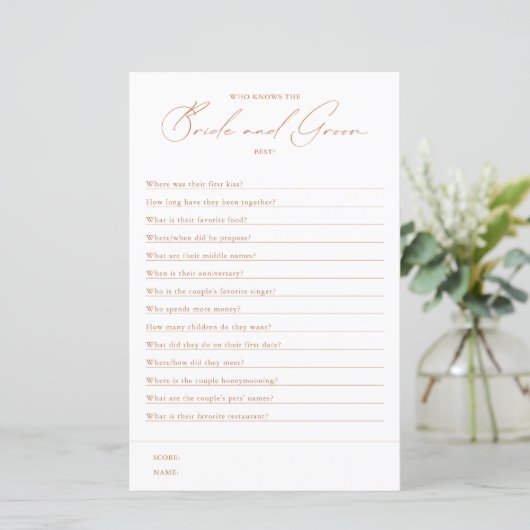 WHO KNOWS THE
Bride and Groom
BEST?
Where was their first kiss?
How long have they been together?
What is their favorite food?
Where/when did he propose?
What are their middle names?
When is their anniversary?
Who is the couple's favorite singer?
Who spends more money?
How many children do they want?
What did they do on their first date?
Where/how did they meet?
Where is the couple honeymooning?
What are the couple's pets' names?
What is their favorite restaurant?
SCORE:
NAME: